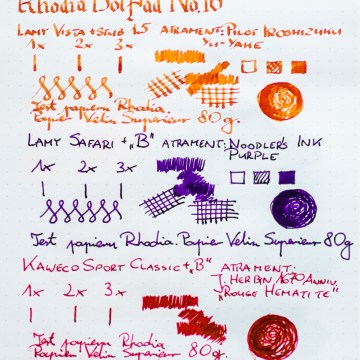 Rhodia Dotpad No.16
Lamy Vista + Stub 1.5 Atrament: Pilot Iroshizuku
Yu-Yake
1x 2x 3x
Test papieru Rhodia.
Papier Velin Superieur 80g.
Lamy Safari + „B” Atrament: Noodler's Ink
Purple
1x 2x 3x
Test papieru Rhodia. Papier Velin Superieur 80g
Kaweco Sport Classic + „B” Atrament:
J. Herbin 1670 Anniv.
„Rouge Hematite”
1x 2x 3x
Test papieru Rhodia
Papier Velin Superieur 80g.